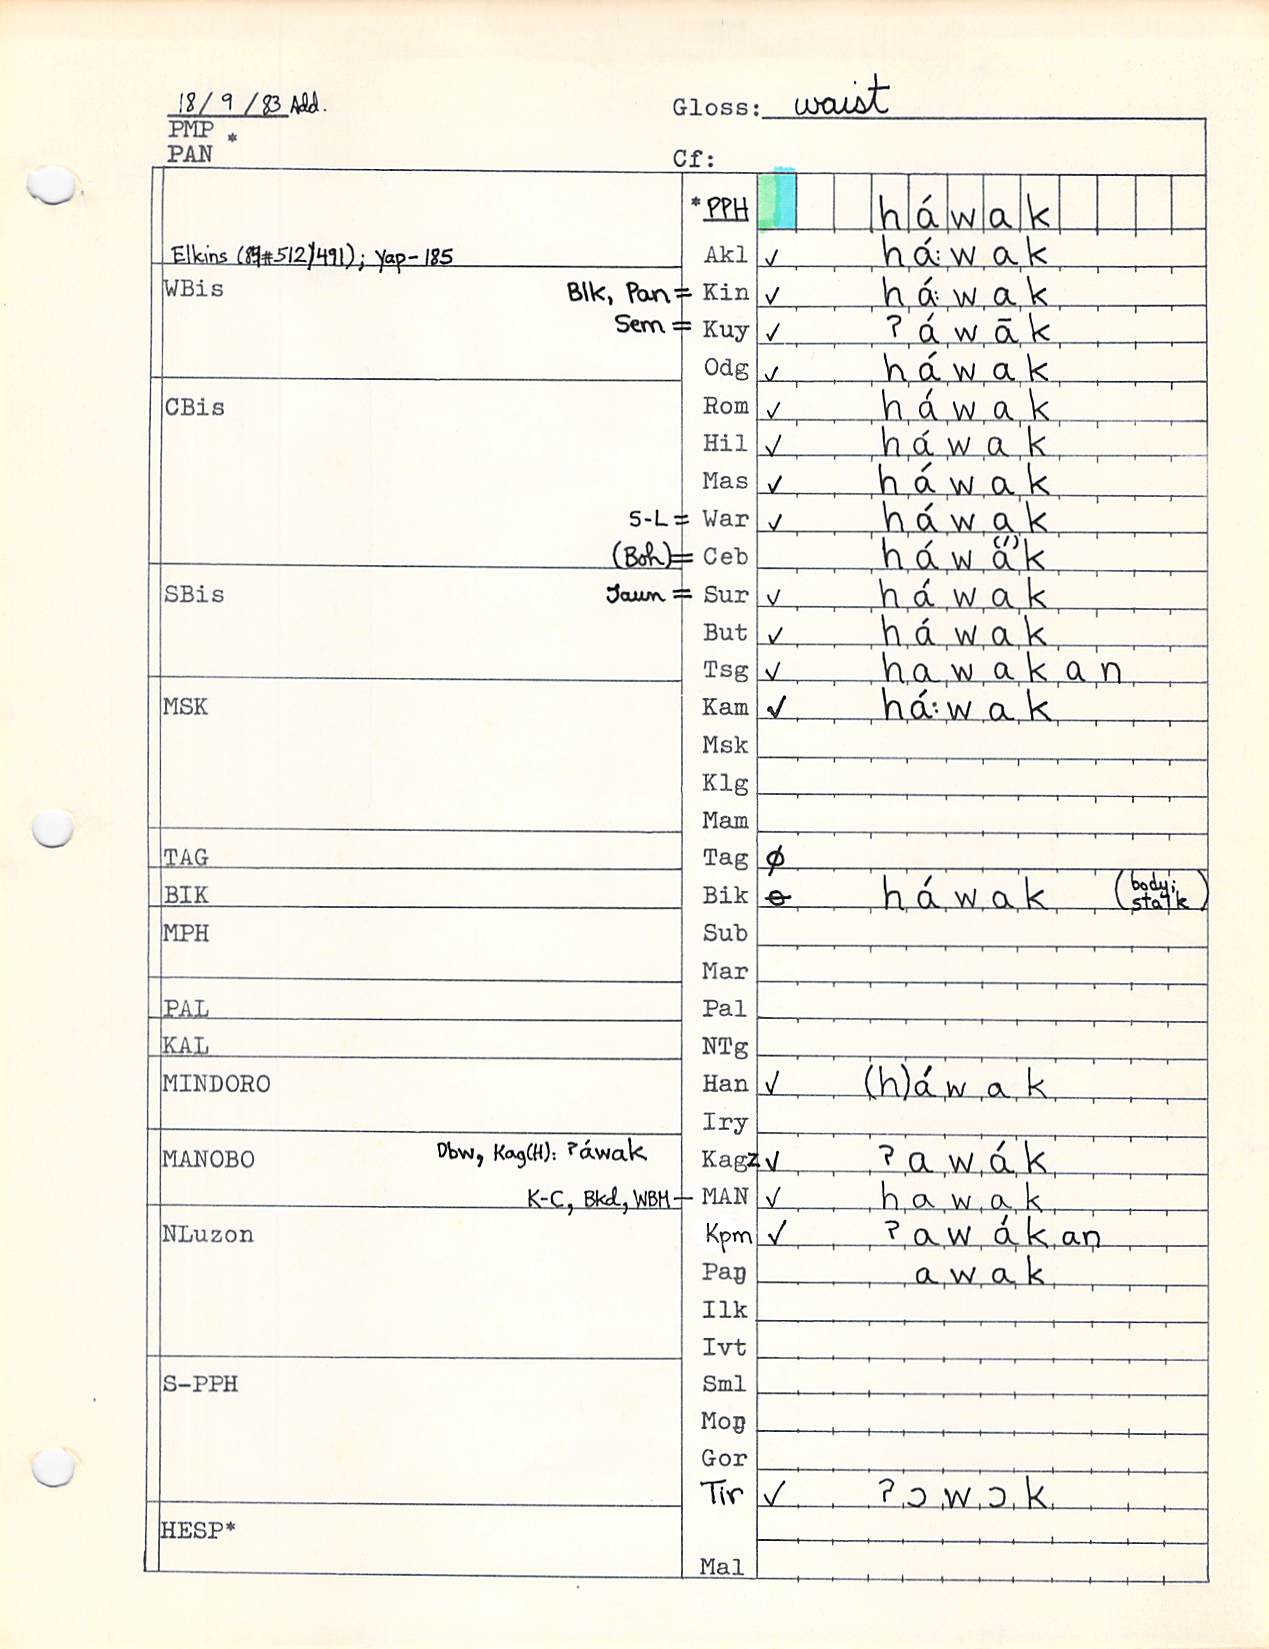 18/9/83 Add.
Gloss: waist
PMP
PAN *
Cf:
*PPH háwak
Elkins (#512/491); Yap-185
Akl ✓ há:wak
WBis Blk, Pan = Kin ✓ há:wak
Sem = Kuy ✓ ʔáwāk
Odg ✓ háwak
CBis Rom ✓ háwak
Hil ✓ háwak
Mas ✓ háwak
S-L = War ✓ háwak
(Boh) = Ceb háwa(́)k
SBis Jaun = Sur ✓ háwak
But ✓ háwak
Tsg ✓ hawakan
MSK Kam ✓ há:wak
Msk
Klg
Mam
TAG Tag ∅
BIK Bik ⊖ háwak (body; stalk)
MPH Sub
Mar
PAL Pal
KAL NTg
MINDORO Han ✓ (h)áwak
Iry
MANOBO Dbw, Kag(H): ʔáwak Kagz ✓ ʔawák
K-C, Bkd, WBM - MAN ✓ hawak
NLuzon Kpm ✓ ʔawákan
Paŋ awak
Ilk
Ivt
S-PPH Sml
Moŋ
Gor
Tir ✓ ʔɔwɔk
HESP*
Mal